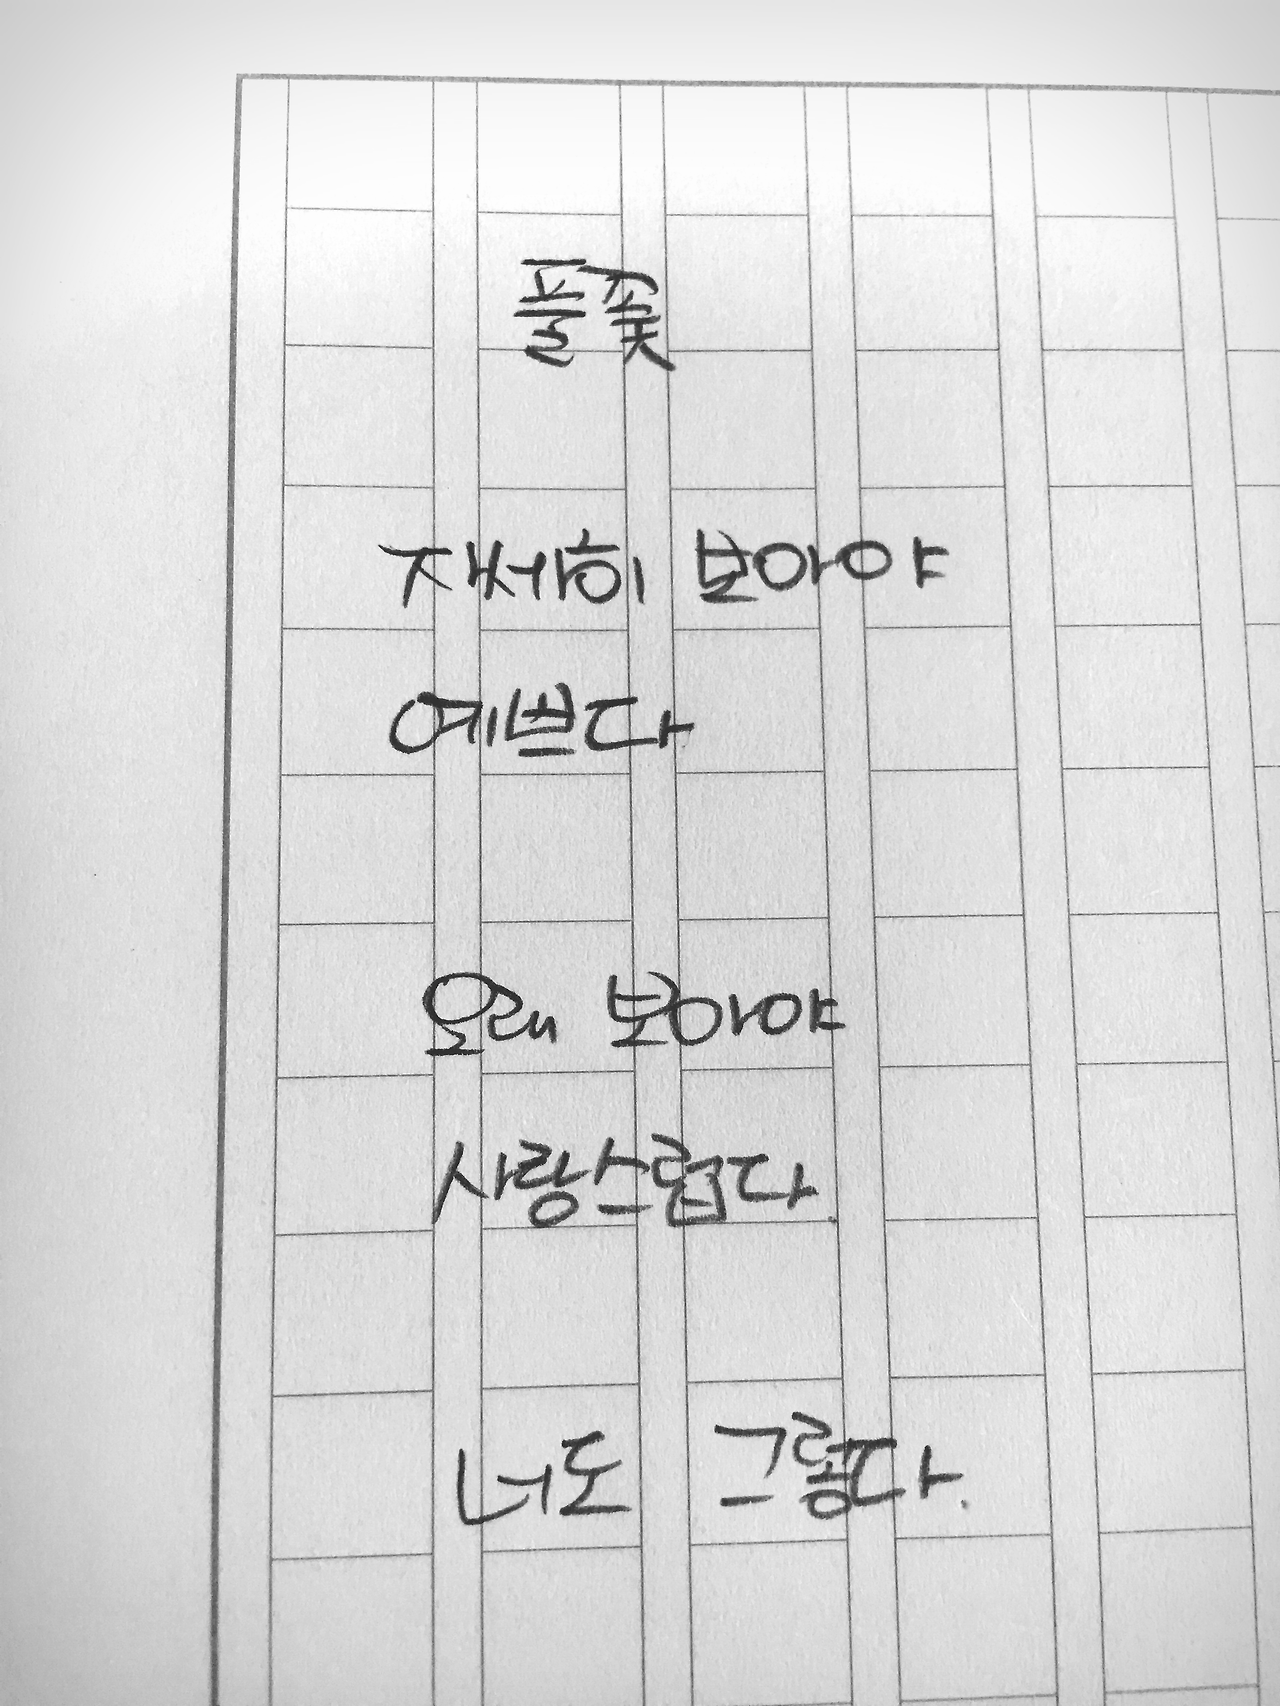 풀꽃
자세히 보아야
예쁘다
오래 보아야
사랑스럽다.
너도 그렇다.